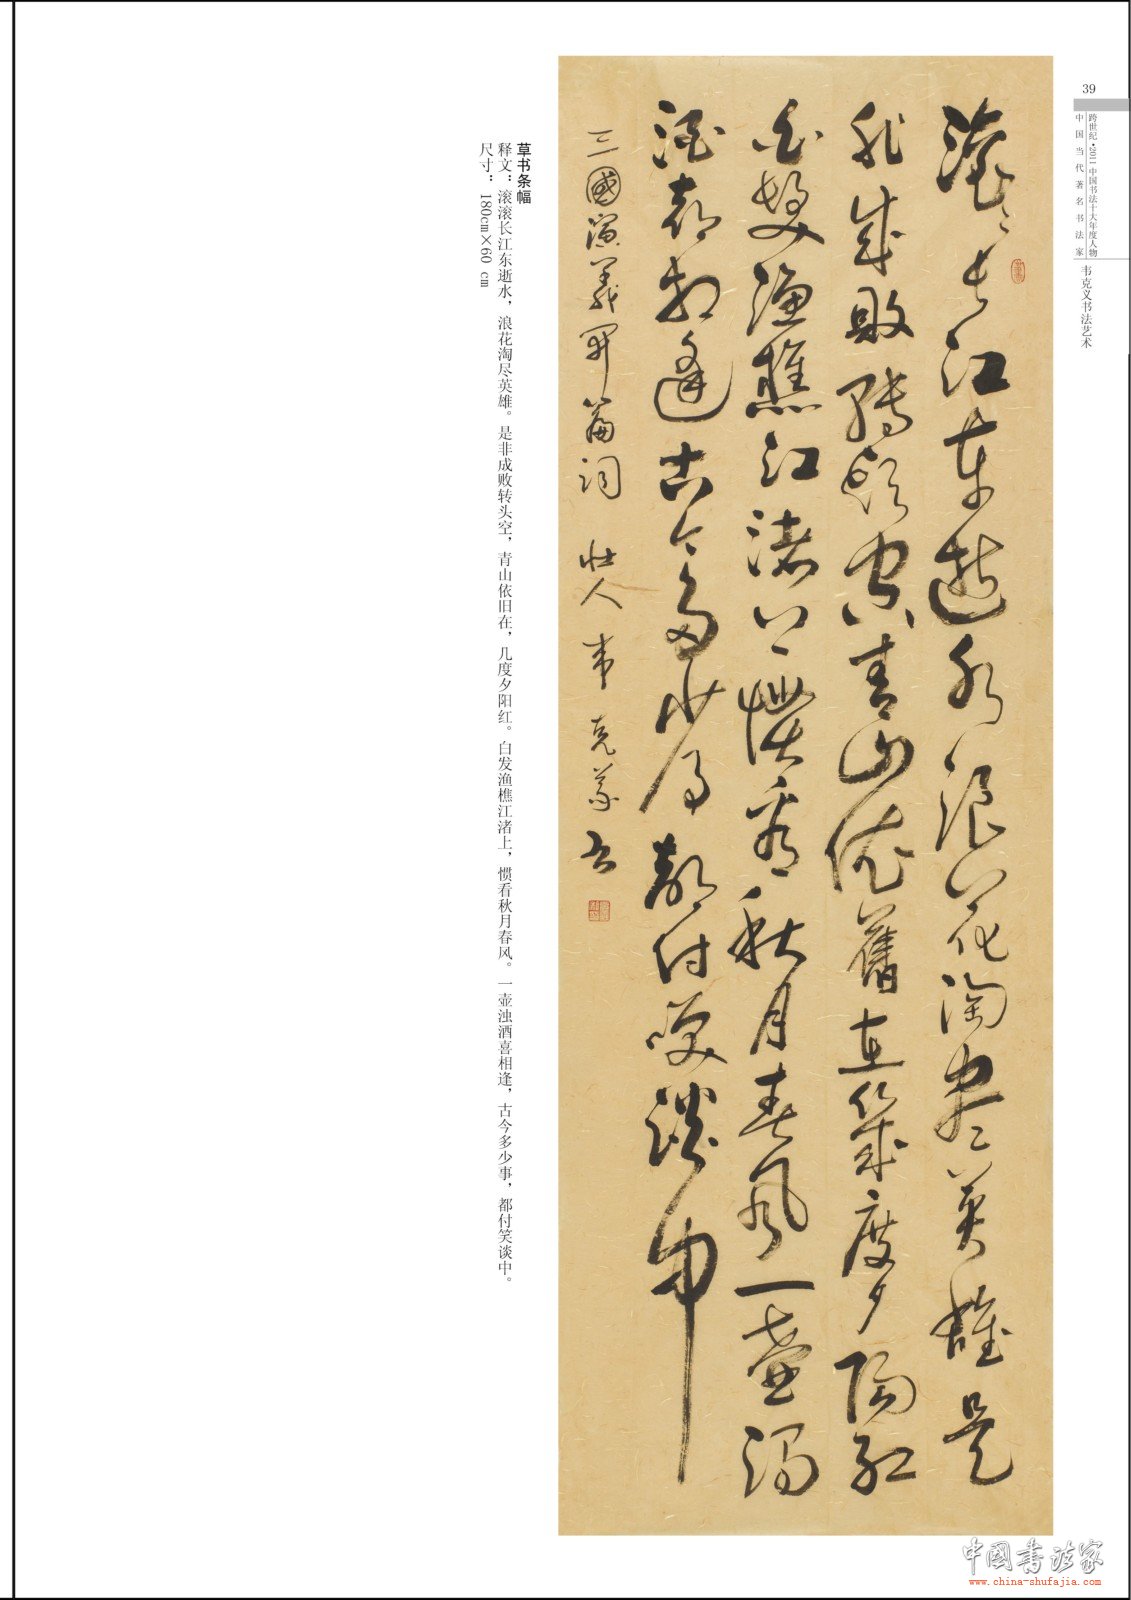 39
跨世纪·2011中国书法十大年度人物
中国当代著名书法家
韦克义书法艺术
滚〻長江東逝水浪花淘盡英雄是
非成敗轉頭空青山依舊在幾度夕陽紅
白髮漁樵江渚上慣看秋月春風一壺濁
酒喜相逢古今多少事都付笑談中
三國演義開篇詞 壮人韦克義書
草书条幅
释文：滚滚长江东逝水，浪花淘尽英雄。是非成败转头空，青山依旧在，几度夕阳红。白发渔樵江渚上，惯看秋月春风。一壶浊酒喜相逢，古今多少事，都付笑谈中。
尺寸：180cm×60 cm
中国书法家
www.china-shufajia.com